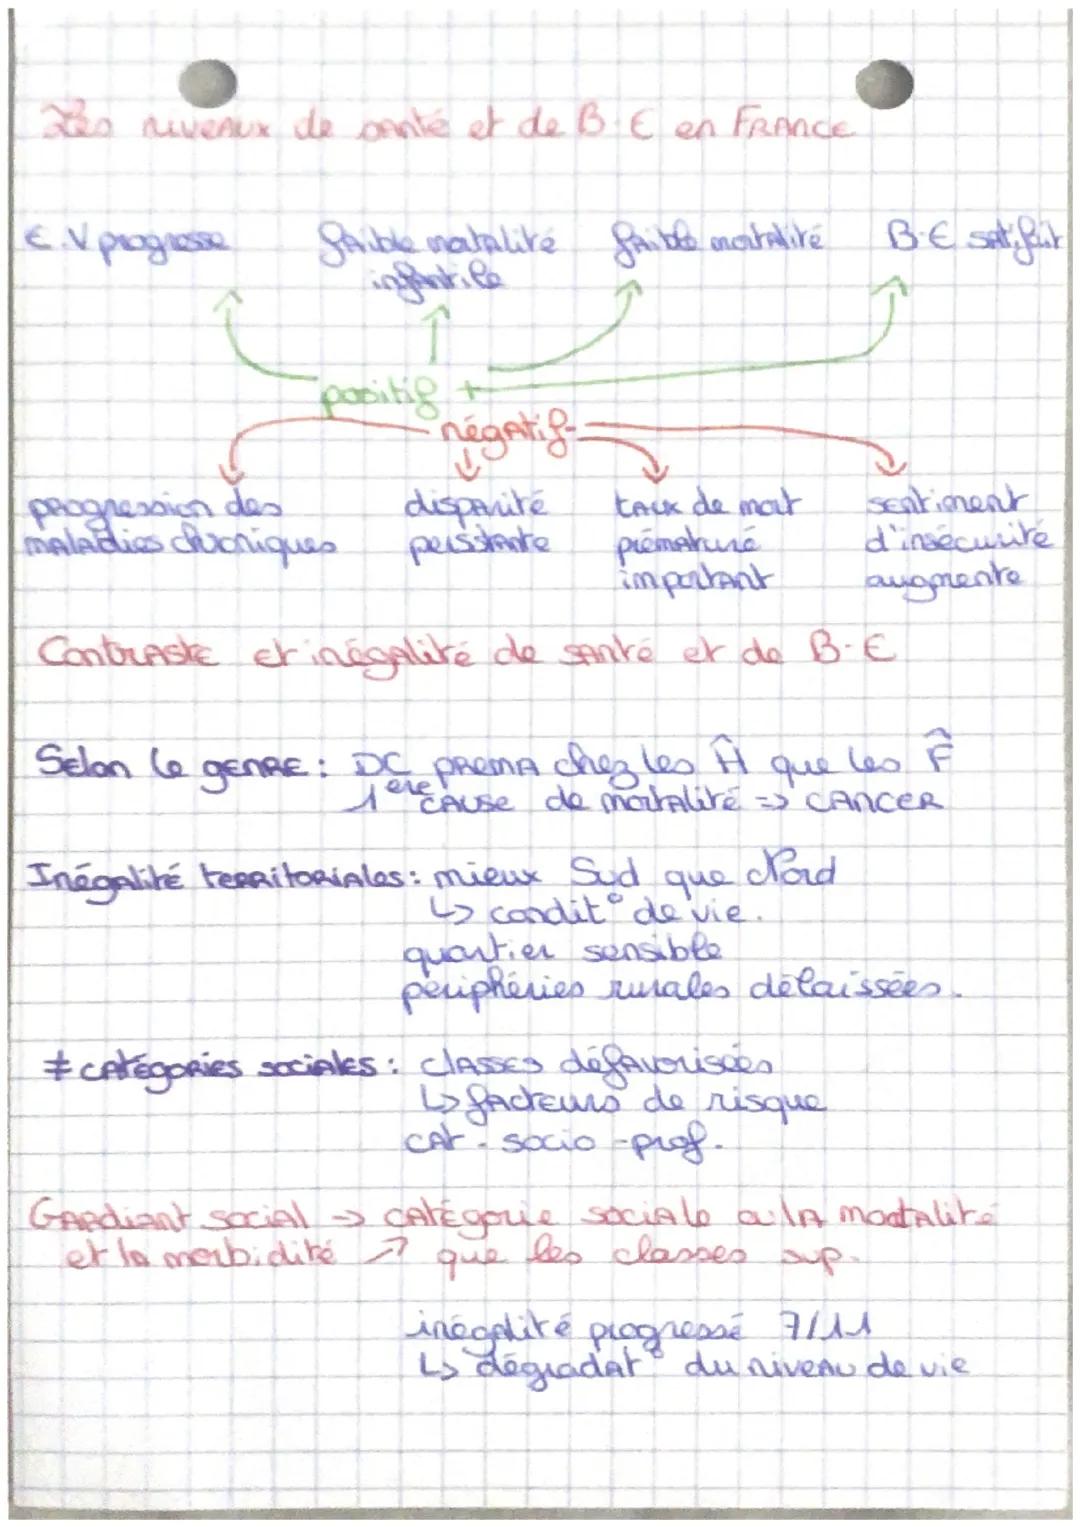 Les niveaux de santé et de B.E en FRANCE
E.V progresse
faible mortalité
infantile
faible mortalité
B.E satifait
positif +
négatif -
progression des
maladies chroniques
disparité
persistante
taux de mort
prématuré
important
sentiment
d'insécurité
augmente
Contraste et inégalité de santé et de B.E
Selon le genre : DC PREMA chez les Ĥ que les F̂
1ère cause de mortalité => CANCER
Inégalité territoriales : mieux Sud que Nord
↳ condit° de vie.
quartier sensible
périphéries rurales délaissées.
≠ catégories sociales : classes défavorisées
↳ facteurs de risque
cat - socio - prof.
Gardiant social → catégorie sociale a la mortalité
et la morbidité ↗ que les classes sup.
inégalité progressé 7/11
↳ dégradat° du niveau de vie